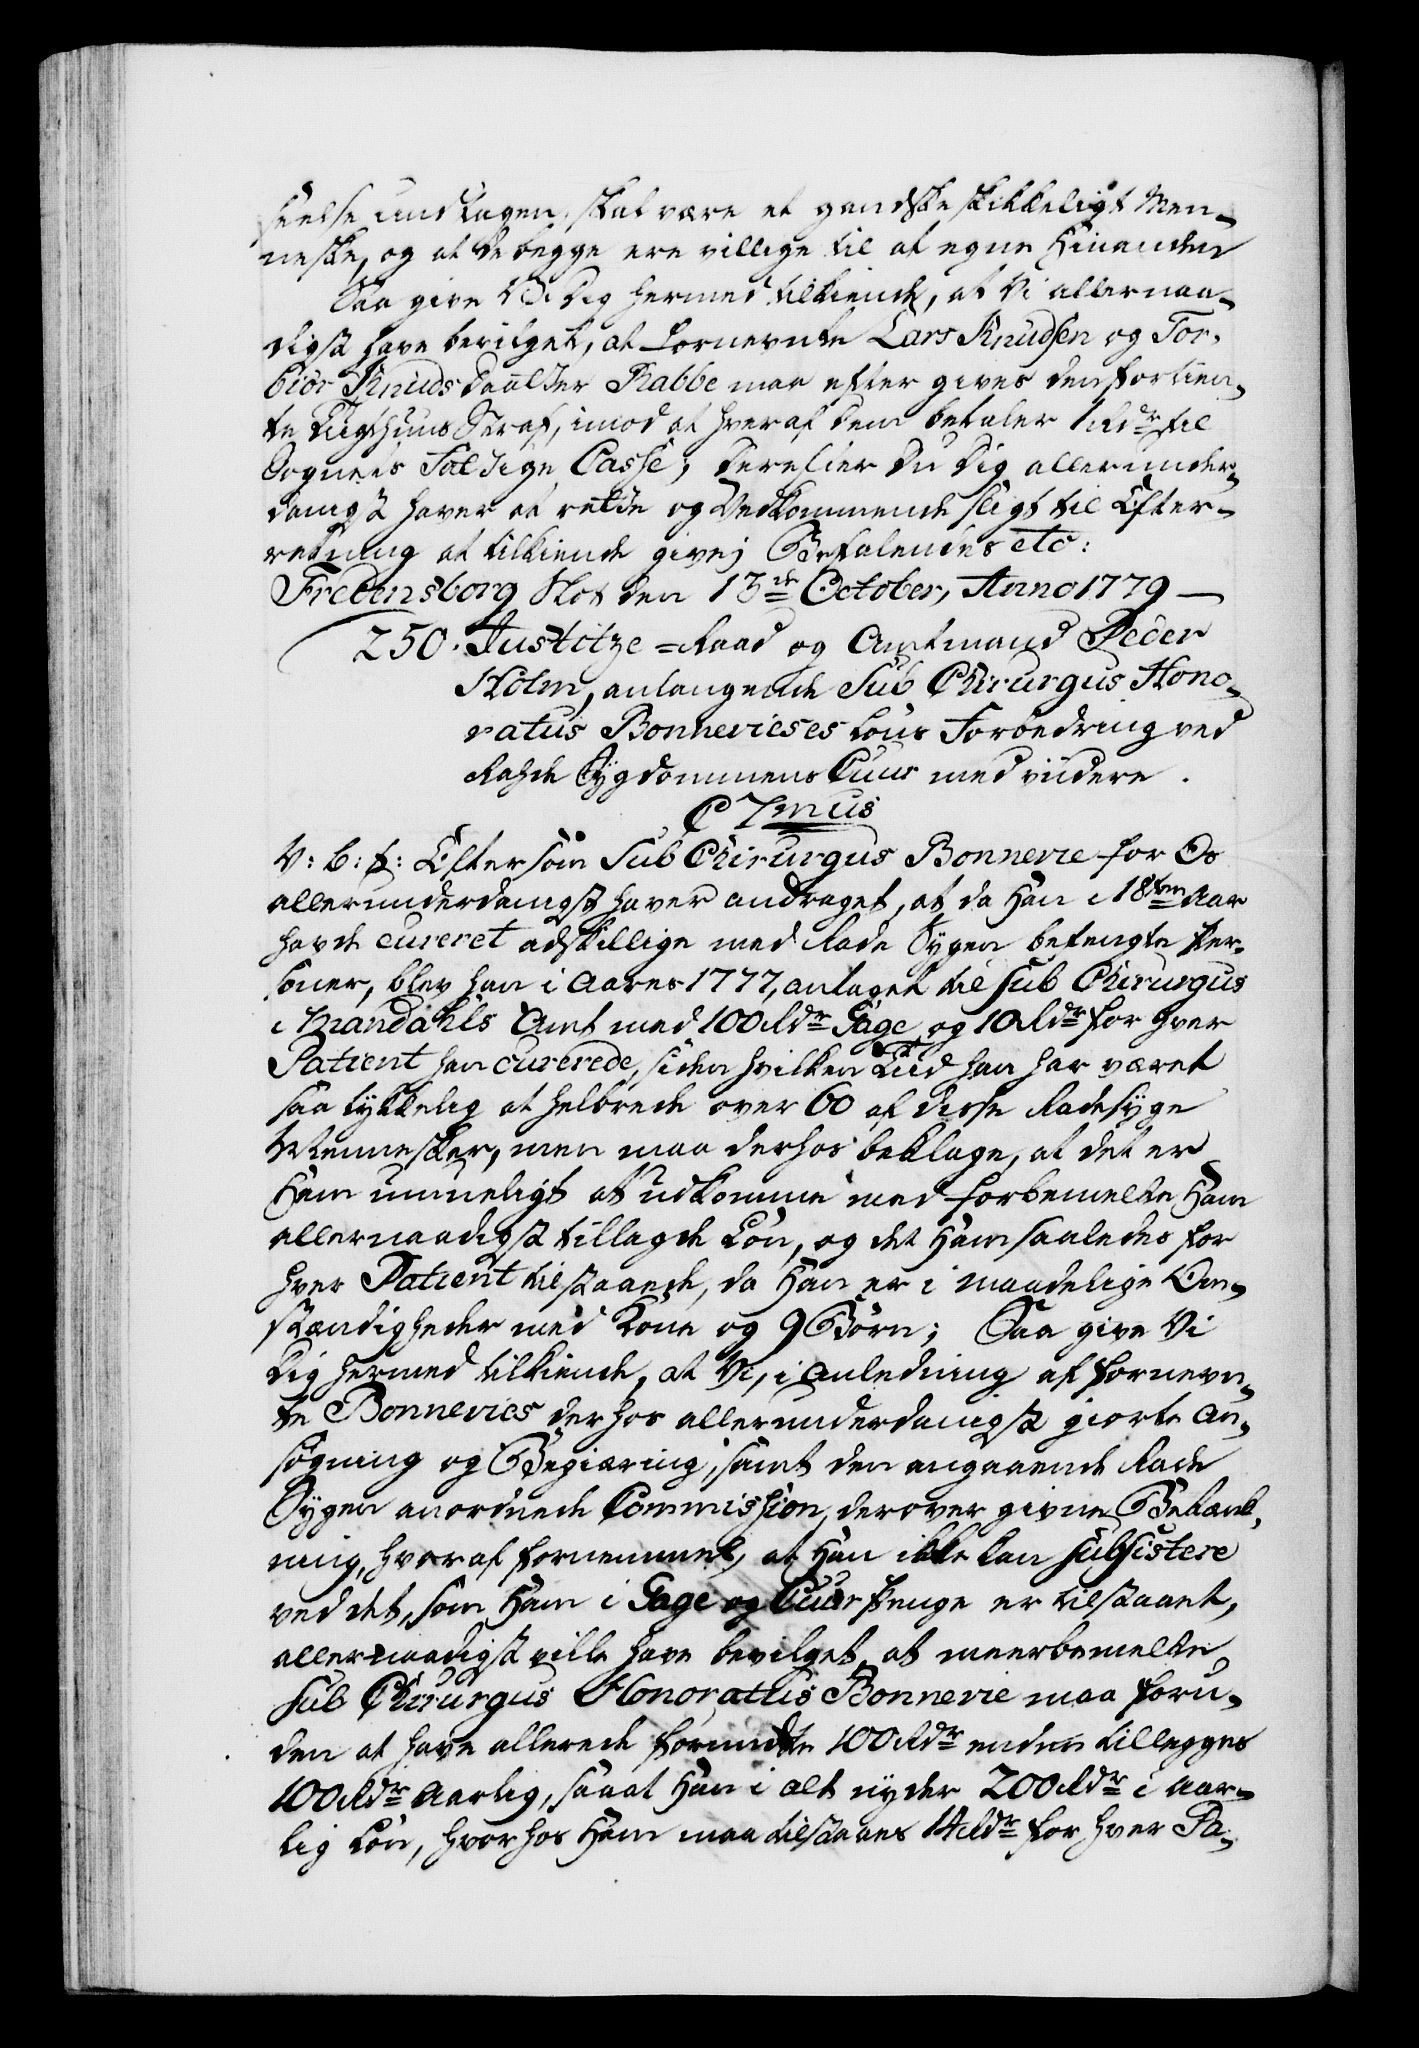 seelse undtagen, skal være et gandske skikkeligt Men-
neske, og at de begge ere villige til at egne Hinanden
Saa give Vi Dig hermed tilkiende, at Vi allernaa-
digst have bevilget, at fornevnte Lars Knudsen og Tor-
biör Knuds Daatter Rabbe maa efter gives den fortien-
te Tugthuus Straf, imod at hver af dem betaler 1 Rdr til
Sognets Fattige Casse; derefter Du Dig allerunder-
danigst haver at rette og Vedkommende sligt til Efter-
retning at tilkiende give; Befalendes etc:
Fredensborg Slot den 13de October, Anno 1779 —
250. Justitze=Raad og Amtmand Peder
Holm, anlangende Sub Chirurgus Hono-
ratus Bonnevieses Løns Forbedring ved
Rahde Sygdommens Cuur med viidere.
C 7mus
V: G: T: Eftersom Sub Chirurgus Bonnevie for Os
allerunderdanigst haver andraget, at da Han i 18ten Aar
havde cureret adskillige med Rade Sygen befengte Per-
soner, blev han i Aaret 1777, antaget til Sub Chirurgus
i Mandahls Amt med 100 Rdr Gage og 10 Rdr for hver
Patient han curerede, siden hvilken Tiid han har været
saa lykkelig at helbrede over 60 af disse Radesyge
Mennesker, men maa derhos beklage, at det er
Ham umueligt at udkomme med forbemelte Ham
allernaadigst tillagde Løn, og det Ham saaledes for
hver Patient tilstaaede, da Han er i maadelige Om-
stændigheder med Kone og 9 Børn; Saa give Vi
Dig hermed tilkiende, at Vi, i Anledning af fornevn-
te Bonnevies derhos allerunderdanigst giorte An-
søgning og Begiæring, samt den angaaende Rade
Sygen anordnede Commission, derover givne Betænk-
ning, hvoraf fornemmes, at Han ikke kan subsistere
ved det, som Ham i Gage og Cuur Penge er tilstaaet,
allernaadigst ville have bevilget, at meerbemelte
Sub Chirurgus Honoratus Bonnevie maa foru-
den at have allerede forundte 100 Rdr endnu tillegges
100 Rdr Aarlig, saa at Han i alt nyder 200 Rdr i aar-
lig Løn, hvorhos Ham maa tilstaaes 14 Rdr for hver Pa-